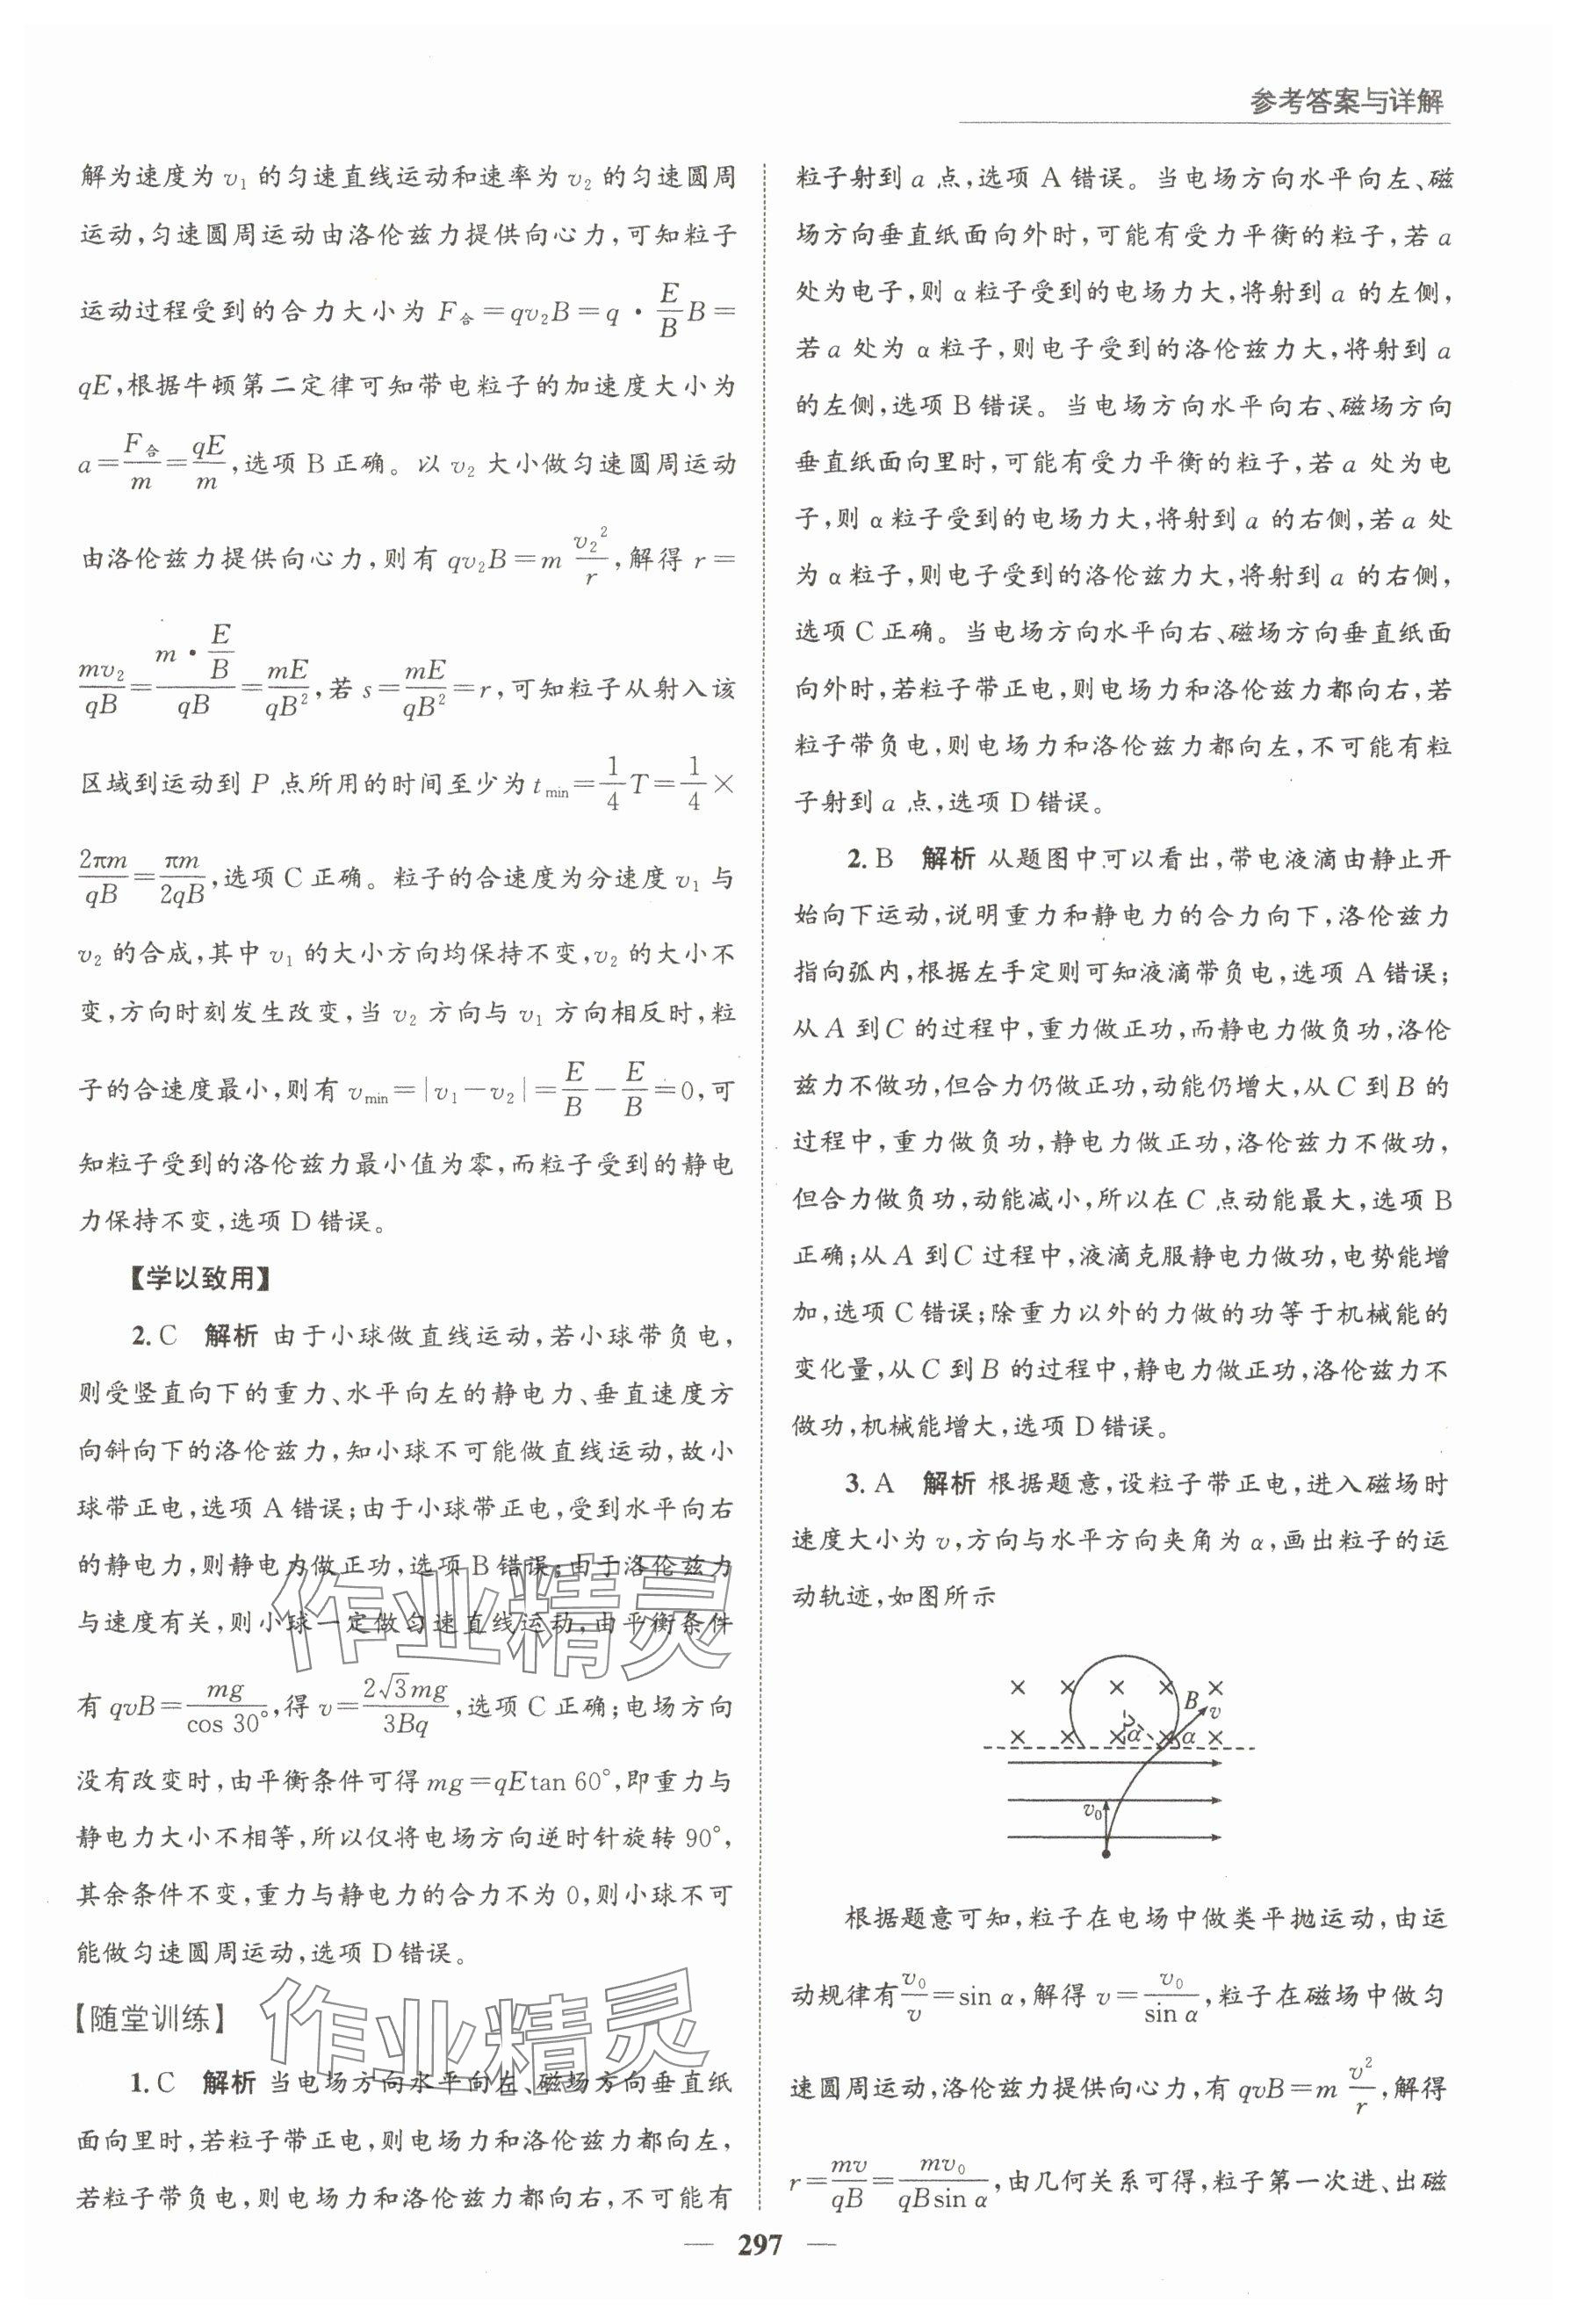 参考答案与详解
解为速度为 v₁ 的匀速直线运动和速率为 v₂ 的匀速圆周
运动,匀速圆周运动由洛伦兹力提供向心力,可知粒子
运动过程受到的合力大小为 F合=qv₂B=q·E/B B=
qE,根据牛顿第二定律可知带电粒子的加速度大小为
a=F合/m=qE/m,选项 B 正确。以 v₂ 大小做匀速圆周运动
由洛伦兹力提供向心力,则有 qv₂B=m v₂²/r,解得 r=
mv₂/qB=(m·E/B)/qB=mE/qB²,若 s=mE/qB²=r,可知粒子从射入该
区域到运动到 P 点所用的时间至少为 tmin=1/4 T=1/4×
2πm/qB=πm/2qB,选项 C 正确。粒子的合速度为分速度 v₁ 与
v₂ 的合成,其中 v₁ 的大小方向均保持不变,v₂ 的大小不
变,方向时刻发生改变,当 v₂ 方向与 v₁ 方向相反时,粒
子的合速度最小,则有 vmin=|v₁-v₂|=E/B-E/B=0,可
知粒子受到的洛伦兹力最小值为零,而粒子受到的静电
力保持不变,选项 D 错误。
【学以致用】
2. C 解析 由于小球做直线运动,若小球带负电,
则受竖直向下的重力、水平向左的静电力、垂直速度方
向斜向下的洛伦兹力,知小球不可能做直线运动,故小
球带正电,选项 A 错误;由于小球带正电,受到水平向右
的静电力,则静电力做正功,选项 B 错误;由于洛伦兹力
与速度有关,则小球一定做匀速直线运动,由平衡条件
有 qvB=mg/cos 30°,得 v=2√3mg/3Bq,选项 C 正确;电场方向
没有改变时,由平衡条件可得 mg=qEtan 60°,即重力与
静电力大小不相等,所以仅将电场方向逆时针旋转 90°,
其余条件不变,重力与静电力的合力不为 0,则小球不可
能做匀速圆周运动,选项 D 错误。
【随堂训练】
1. C 解析 当电场方向水平向左、磁场方向垂直纸
面向里时,若粒子带正电,则电场力和洛伦兹力都向左,
若粒子带负电,则电场力和洛伦兹力都向右,不可能有
粒子射到 a 点,选项 A 错误。当电场方向水平向左、磁
场方向垂直纸面向外时,可能有受力平衡的粒子,若 a
处为电子,则 α 粒子受到的电场力大,将射到 a 的左侧,
若 a 处为 α 粒子,则电子受到的洛伦兹力大,将射到 a
的左侧,选项 B 错误。当电场方向水平向右、磁场方向
垂直纸面向里时,可能有受力平衡的粒子,若 a 处为电
子,则 α 粒子受到的电场力大,将射到 a 的右侧,若 a 处
为 α 粒子,则电子受到的洛伦兹力大,将射到 a 的右侧,
选项 C 正确。当电场方向水平向右、磁场方向垂直纸面
向外时,若粒子带正电,则电场力和洛伦兹力都向右,若
粒子带负电,则电场力和洛伦兹力都向左,不可能有粒
子射到 a 点,选项 D 错误。
2. B 解析 从题图中可以看出,带电液滴由静止开
始向下运动,说明重力和静电力的合力向下,洛伦兹力
指向弧内,根据左手定则可知液滴带负电,选项 A 错误;
从 A 到 C 的过程中,重力做正功,而静电力做负功,洛伦
兹力不做功,但合力仍做正功,动能仍增大,从 C 到 B 的
过程中,重力做负功,静电力做正功,洛伦兹力不做功,
但合力做负功,动能减小,所以在 C 点动能最大,选项 B
正确;从 A 到 C 过程中,液滴克服静电力做功,电势能增
加,选项 C 错误;除重力以外的力做的功等于机械能的
变化量,从 C 到 B 的过程中,静电力做正功,洛伦兹力不
做功,机械能增大,选项 D 错误。
3. A 解析 根据题意,设粒子带正电,进入磁场时
速度大小为 v,方向与水平方向夹角为 α,画出粒子的运
动轨迹,如图所示
B
v
α
α
v₀
根据题意可知,粒子在电场中做类平抛运动,由运
动规律有 v₀/v=sin α,解得 v=v₀/sin α,粒子在磁场中做匀
速圆周运动,洛伦兹力提供向心力,有 qvB=m v²/r,解得
r=mv/qB=mv₀/qBsin α,由几何关系可得,粒子第一次进、出磁
— 297 —
作业精灵
作业精灵